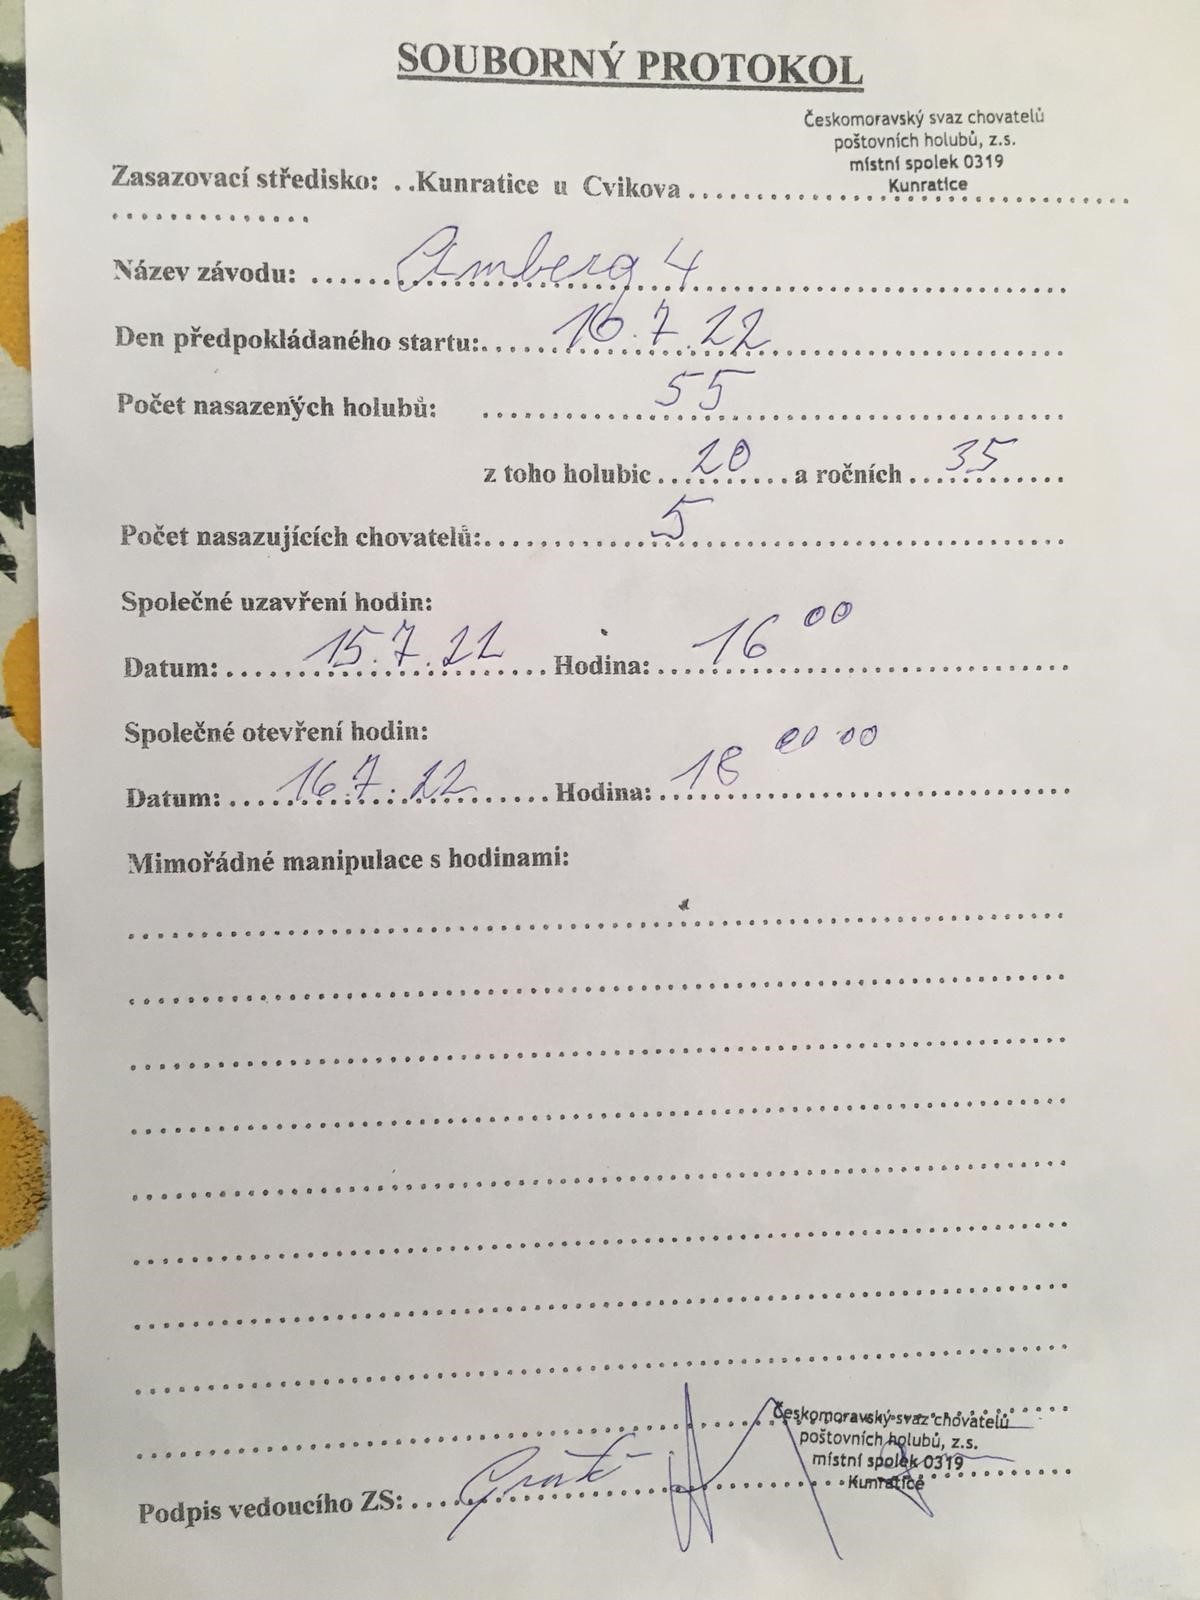 SOUBORNÝ PROTOKOL
Českomoravský svaz chovatelů
poštovních holubů, z.s.
místní spolek 0319
Kunratice
Zasazovací středisko: ..Kunratice u Cvikova
Název závodu: Amberg 4
Den předpokládaného startu: 16.7.22
Počet nasazených holubů: 55
z toho holubic 20 a ročních 35
Počet nasazujících chovatelů: 5
Společné uzavření hodin:
Datum: 15.7.22 Hodina: 16 00
Společné otevření hodin:
Datum: 16.7.22 Hodina: 18 00 00
Mimořádné manipulace s hodinami:
Českomoravský svaz chovatelů
poštovních holubů, z.s.
místní spolek 0319
Kunratice
Podpis vedoucího ZS: